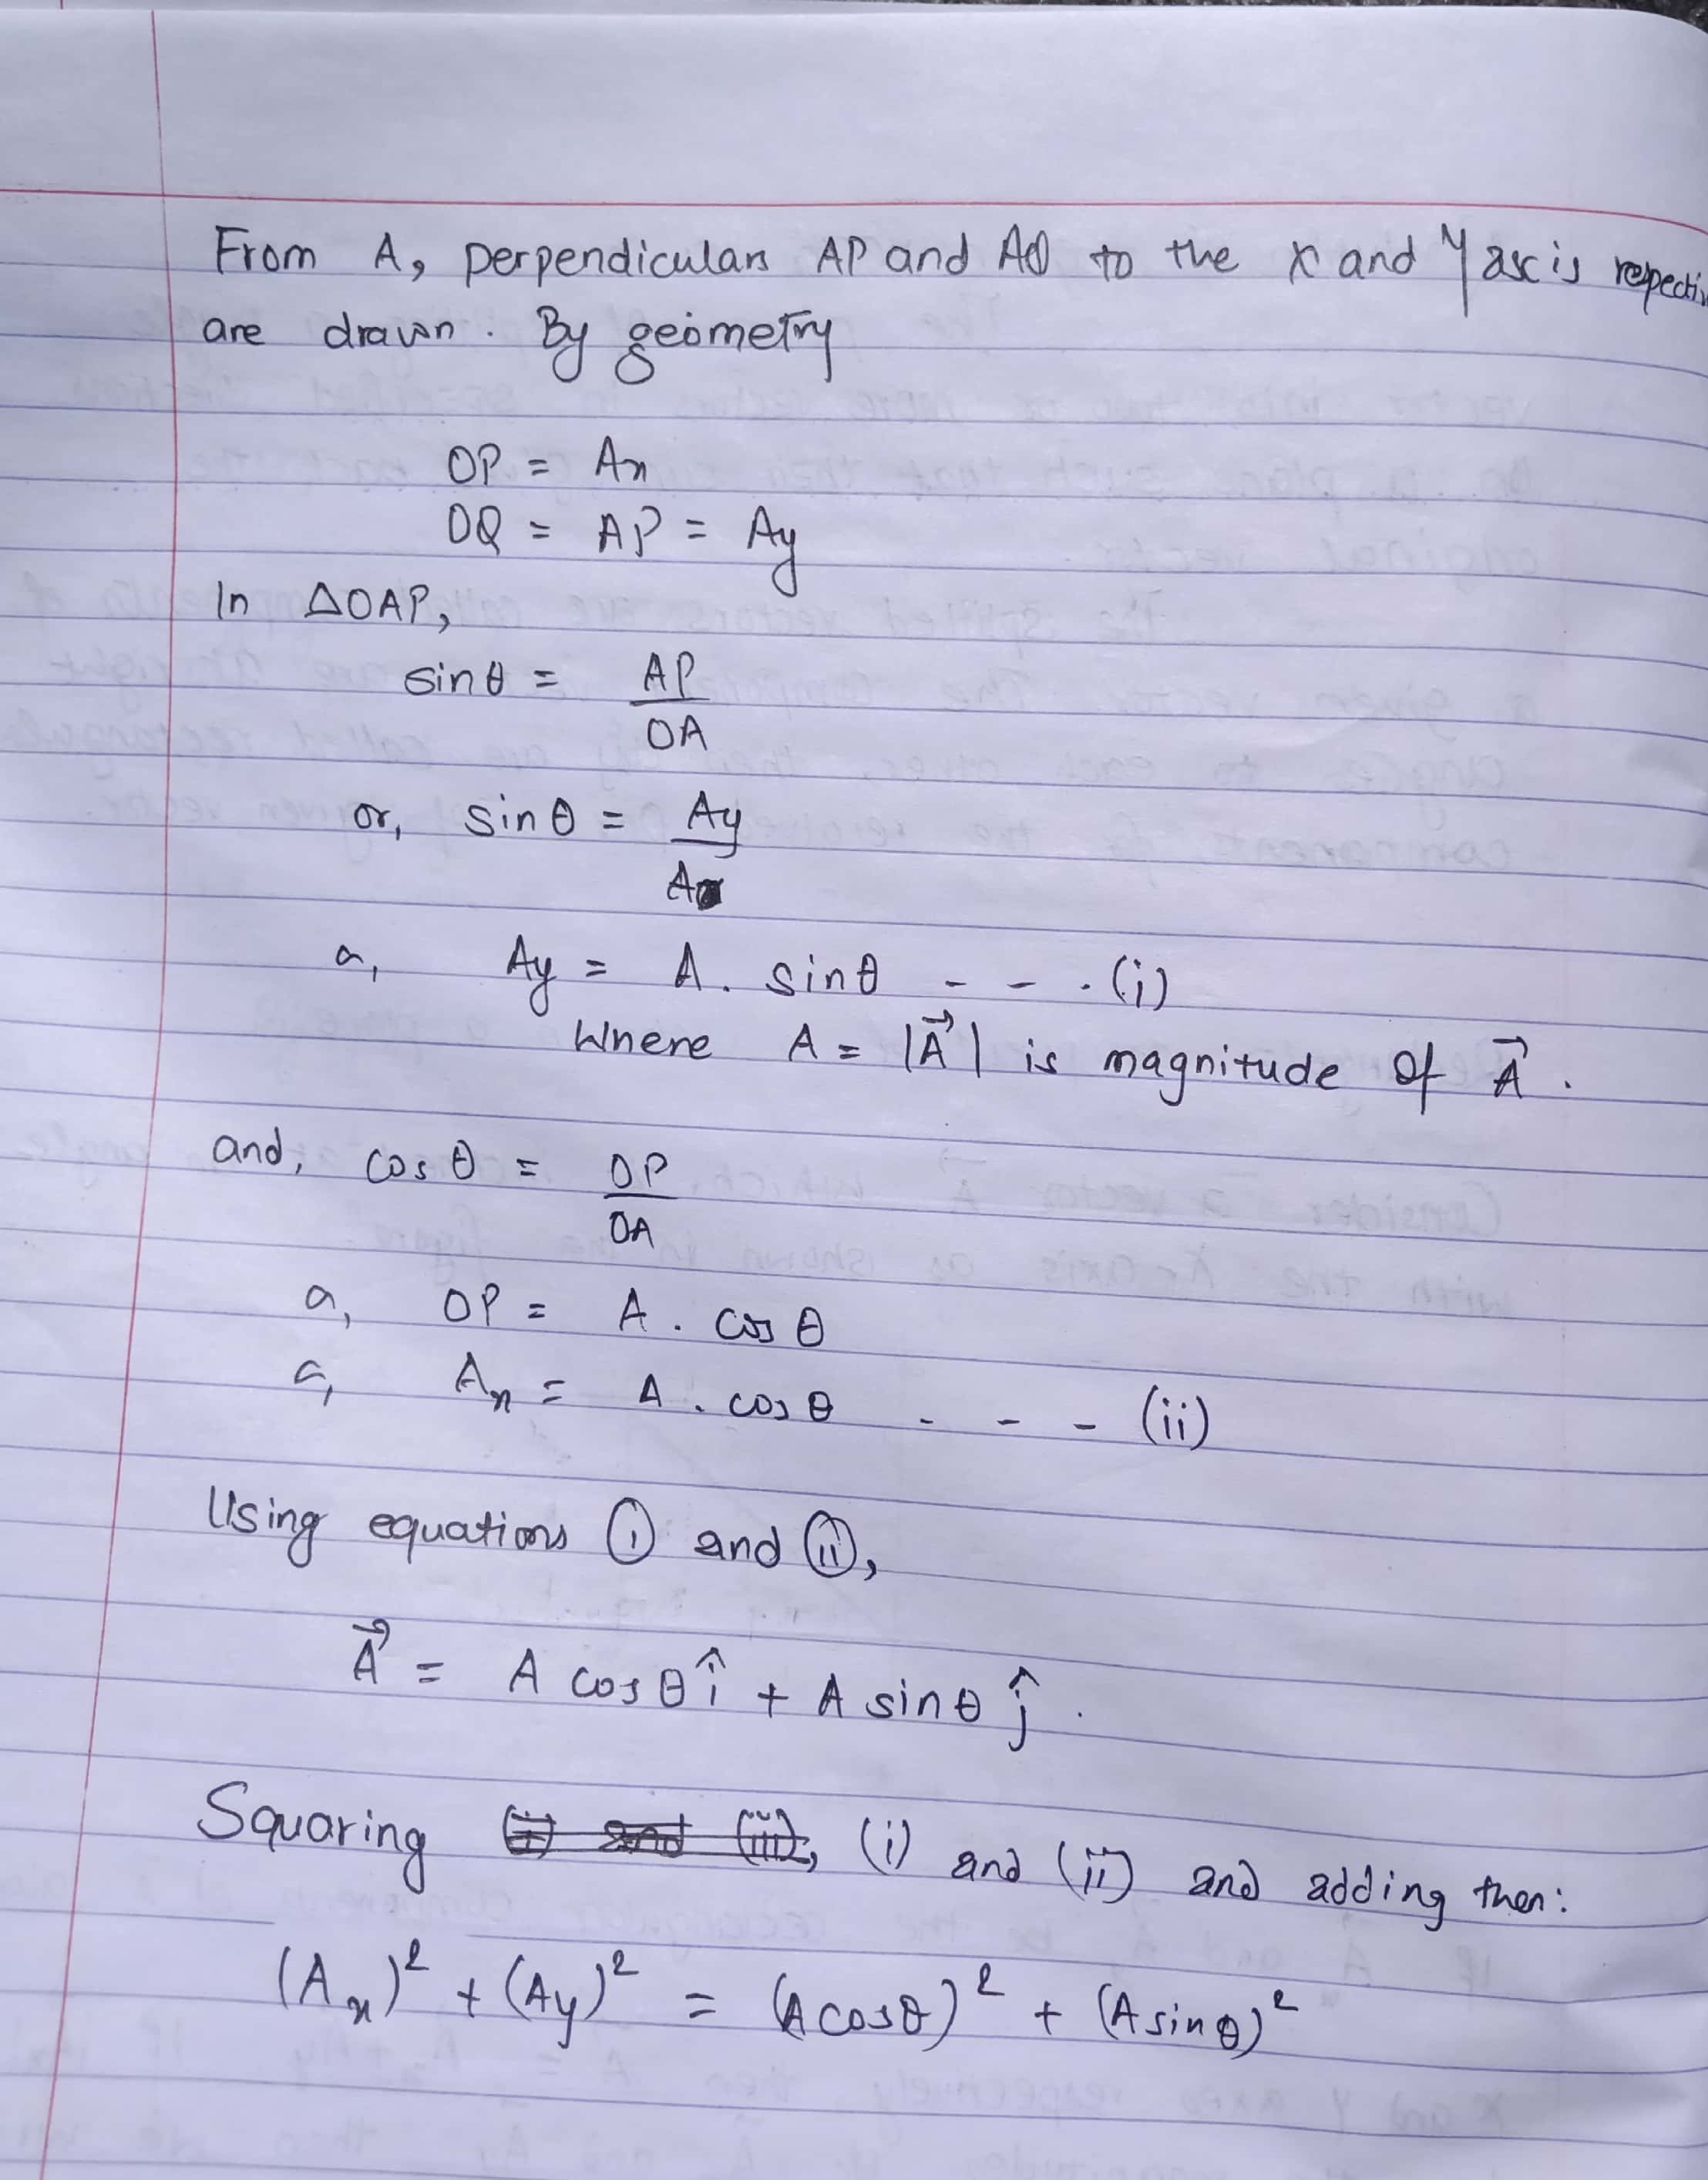 From A, perpendiculars AP and AQ to the X and Y axis
are drawn. By geometry
OP = Ax
OQ = AP = Ay
In △OAP,
sinθ = AP/OA
or, sinθ = Ay/A
or, Ay = A. sinθ - - - (i)
Where A = |A⃗| is magnitude of A⃗.
and, cosθ = OP/OA
or, OP = A. cosθ
or, Ax = A. cosθ - - - (ii)
Using equations (i) and (ii),
A⃗ = A cosθ î + A sinθ ĵ.
Squaring (i) and (ii) and adding then:
(Ax)² + (Ay)² = (A cosθ)² + (A sinθ)²